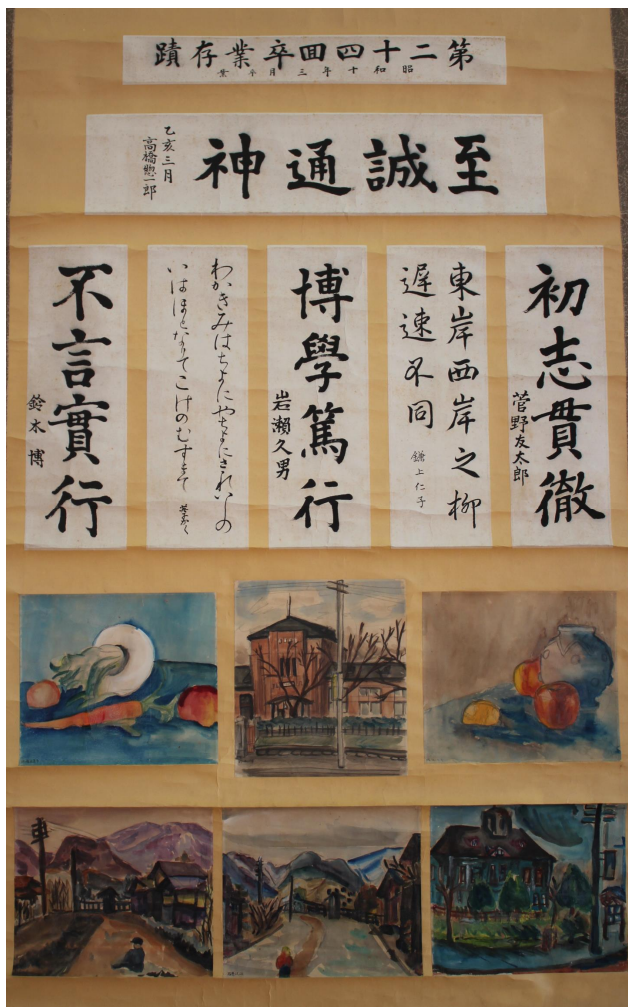 第二十四回卒業存蹟
昭和十年三月卒業
至誠通神
乙亥三月
高橋惣一郎
初志貫徹
菅野友太郎
東岸西岸之柳
遅速不同
鎌上仁子
博學篤行
岩瀬久男
わかきみはちよにやちよにされいしの
いはほとなりてこけのむすまて
不言實行
鈴木博